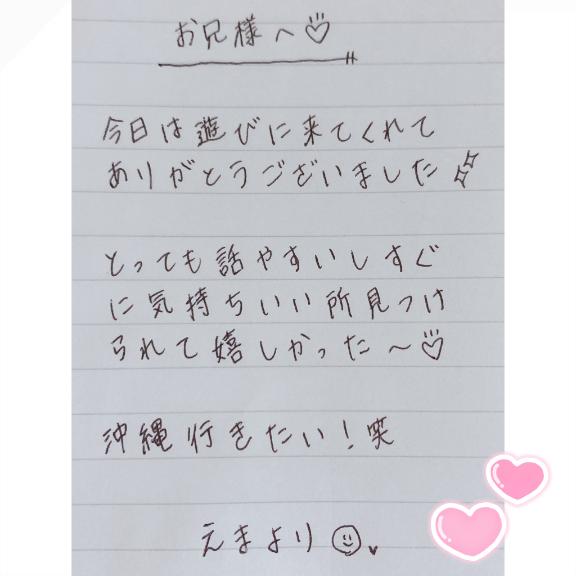 お兄様へ♡
今日は遊びに来てくれて
ありがとうございました
とっても話やすいしすぐ
に気持ちいい所見つけ
られて嬉しかった～♡
沖縄行きたい！笑
えまより